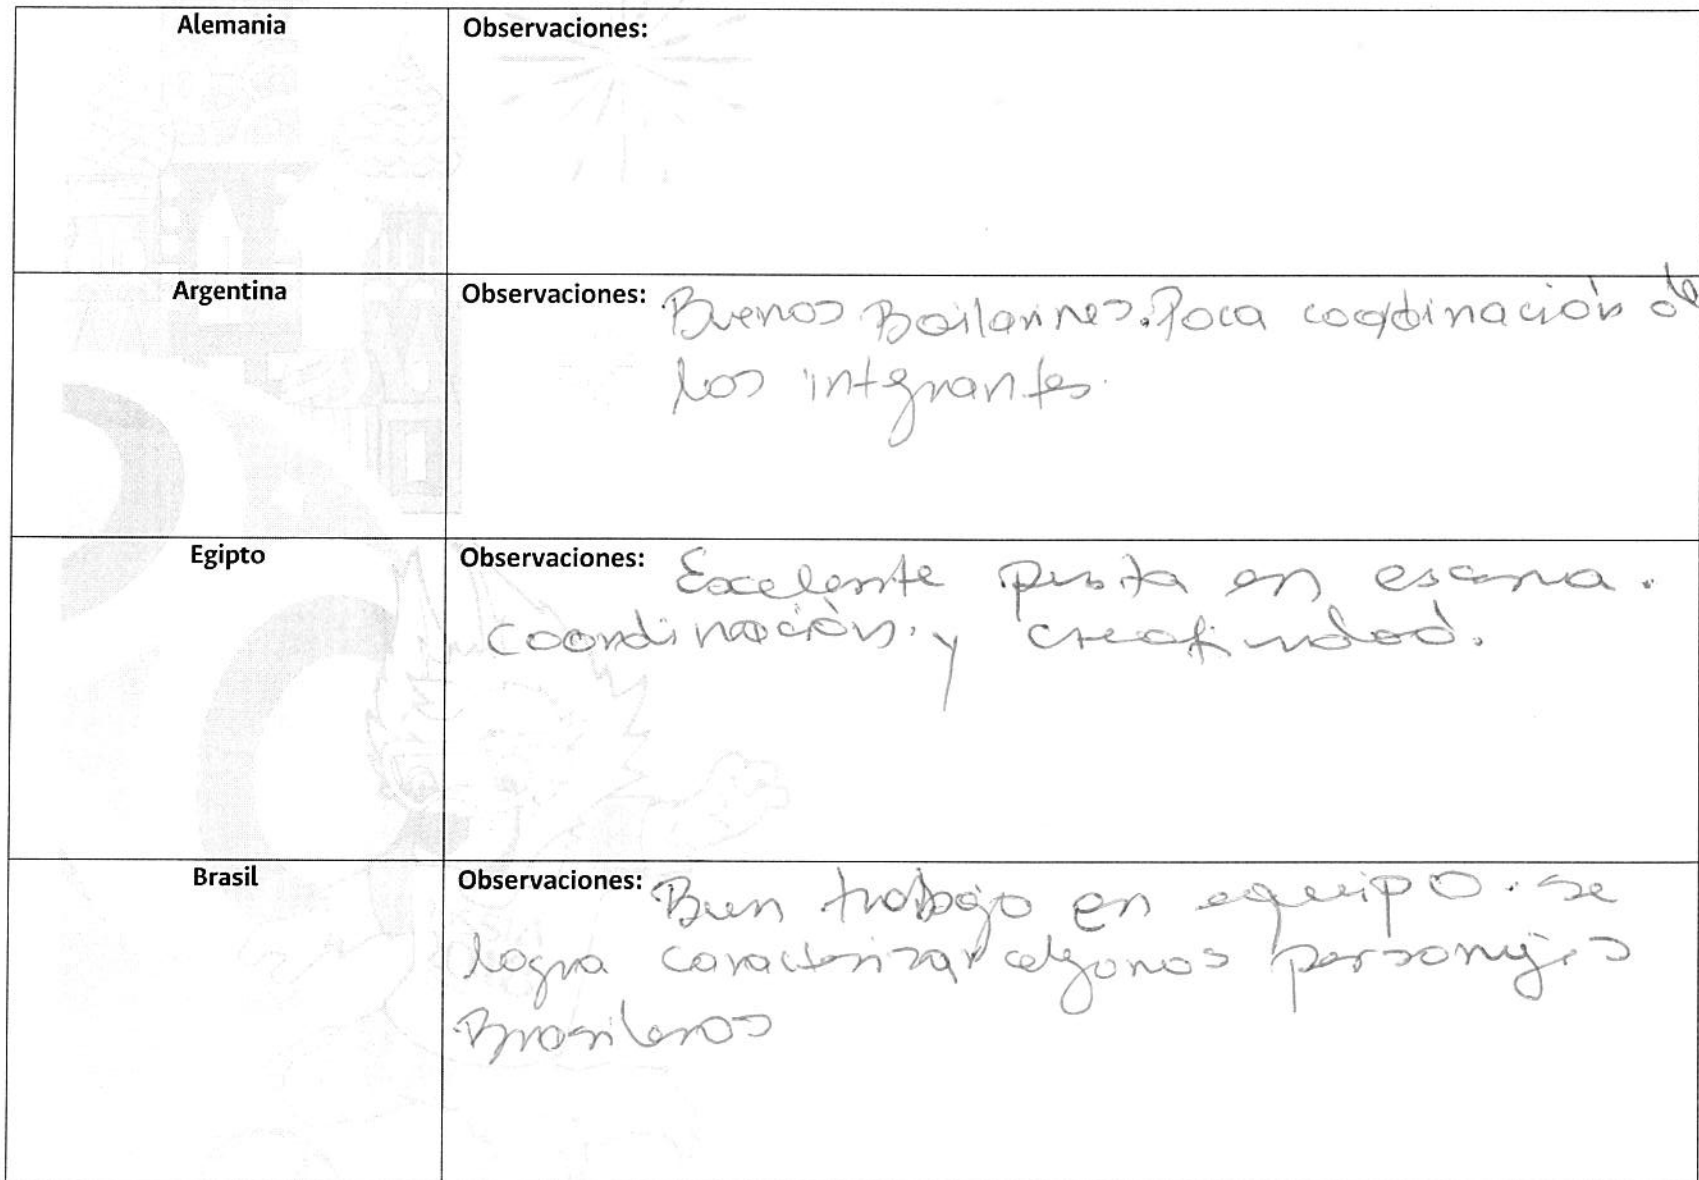 Alemania
Observaciones:
Argentina
Observaciones: Buenos Bailarines. Poca coordinación de
los integrantes.
Egipto
Observaciones: Excelente puesta en escena.
Coordinación y creatividad.
Brasil
Observaciones: Buen trabajo en equipo. Se
logra caracterizar algunos personajes
Brasileros